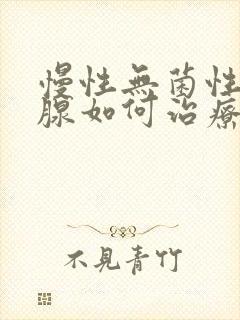 慢性無菌性
腺如何治療
不見青竹